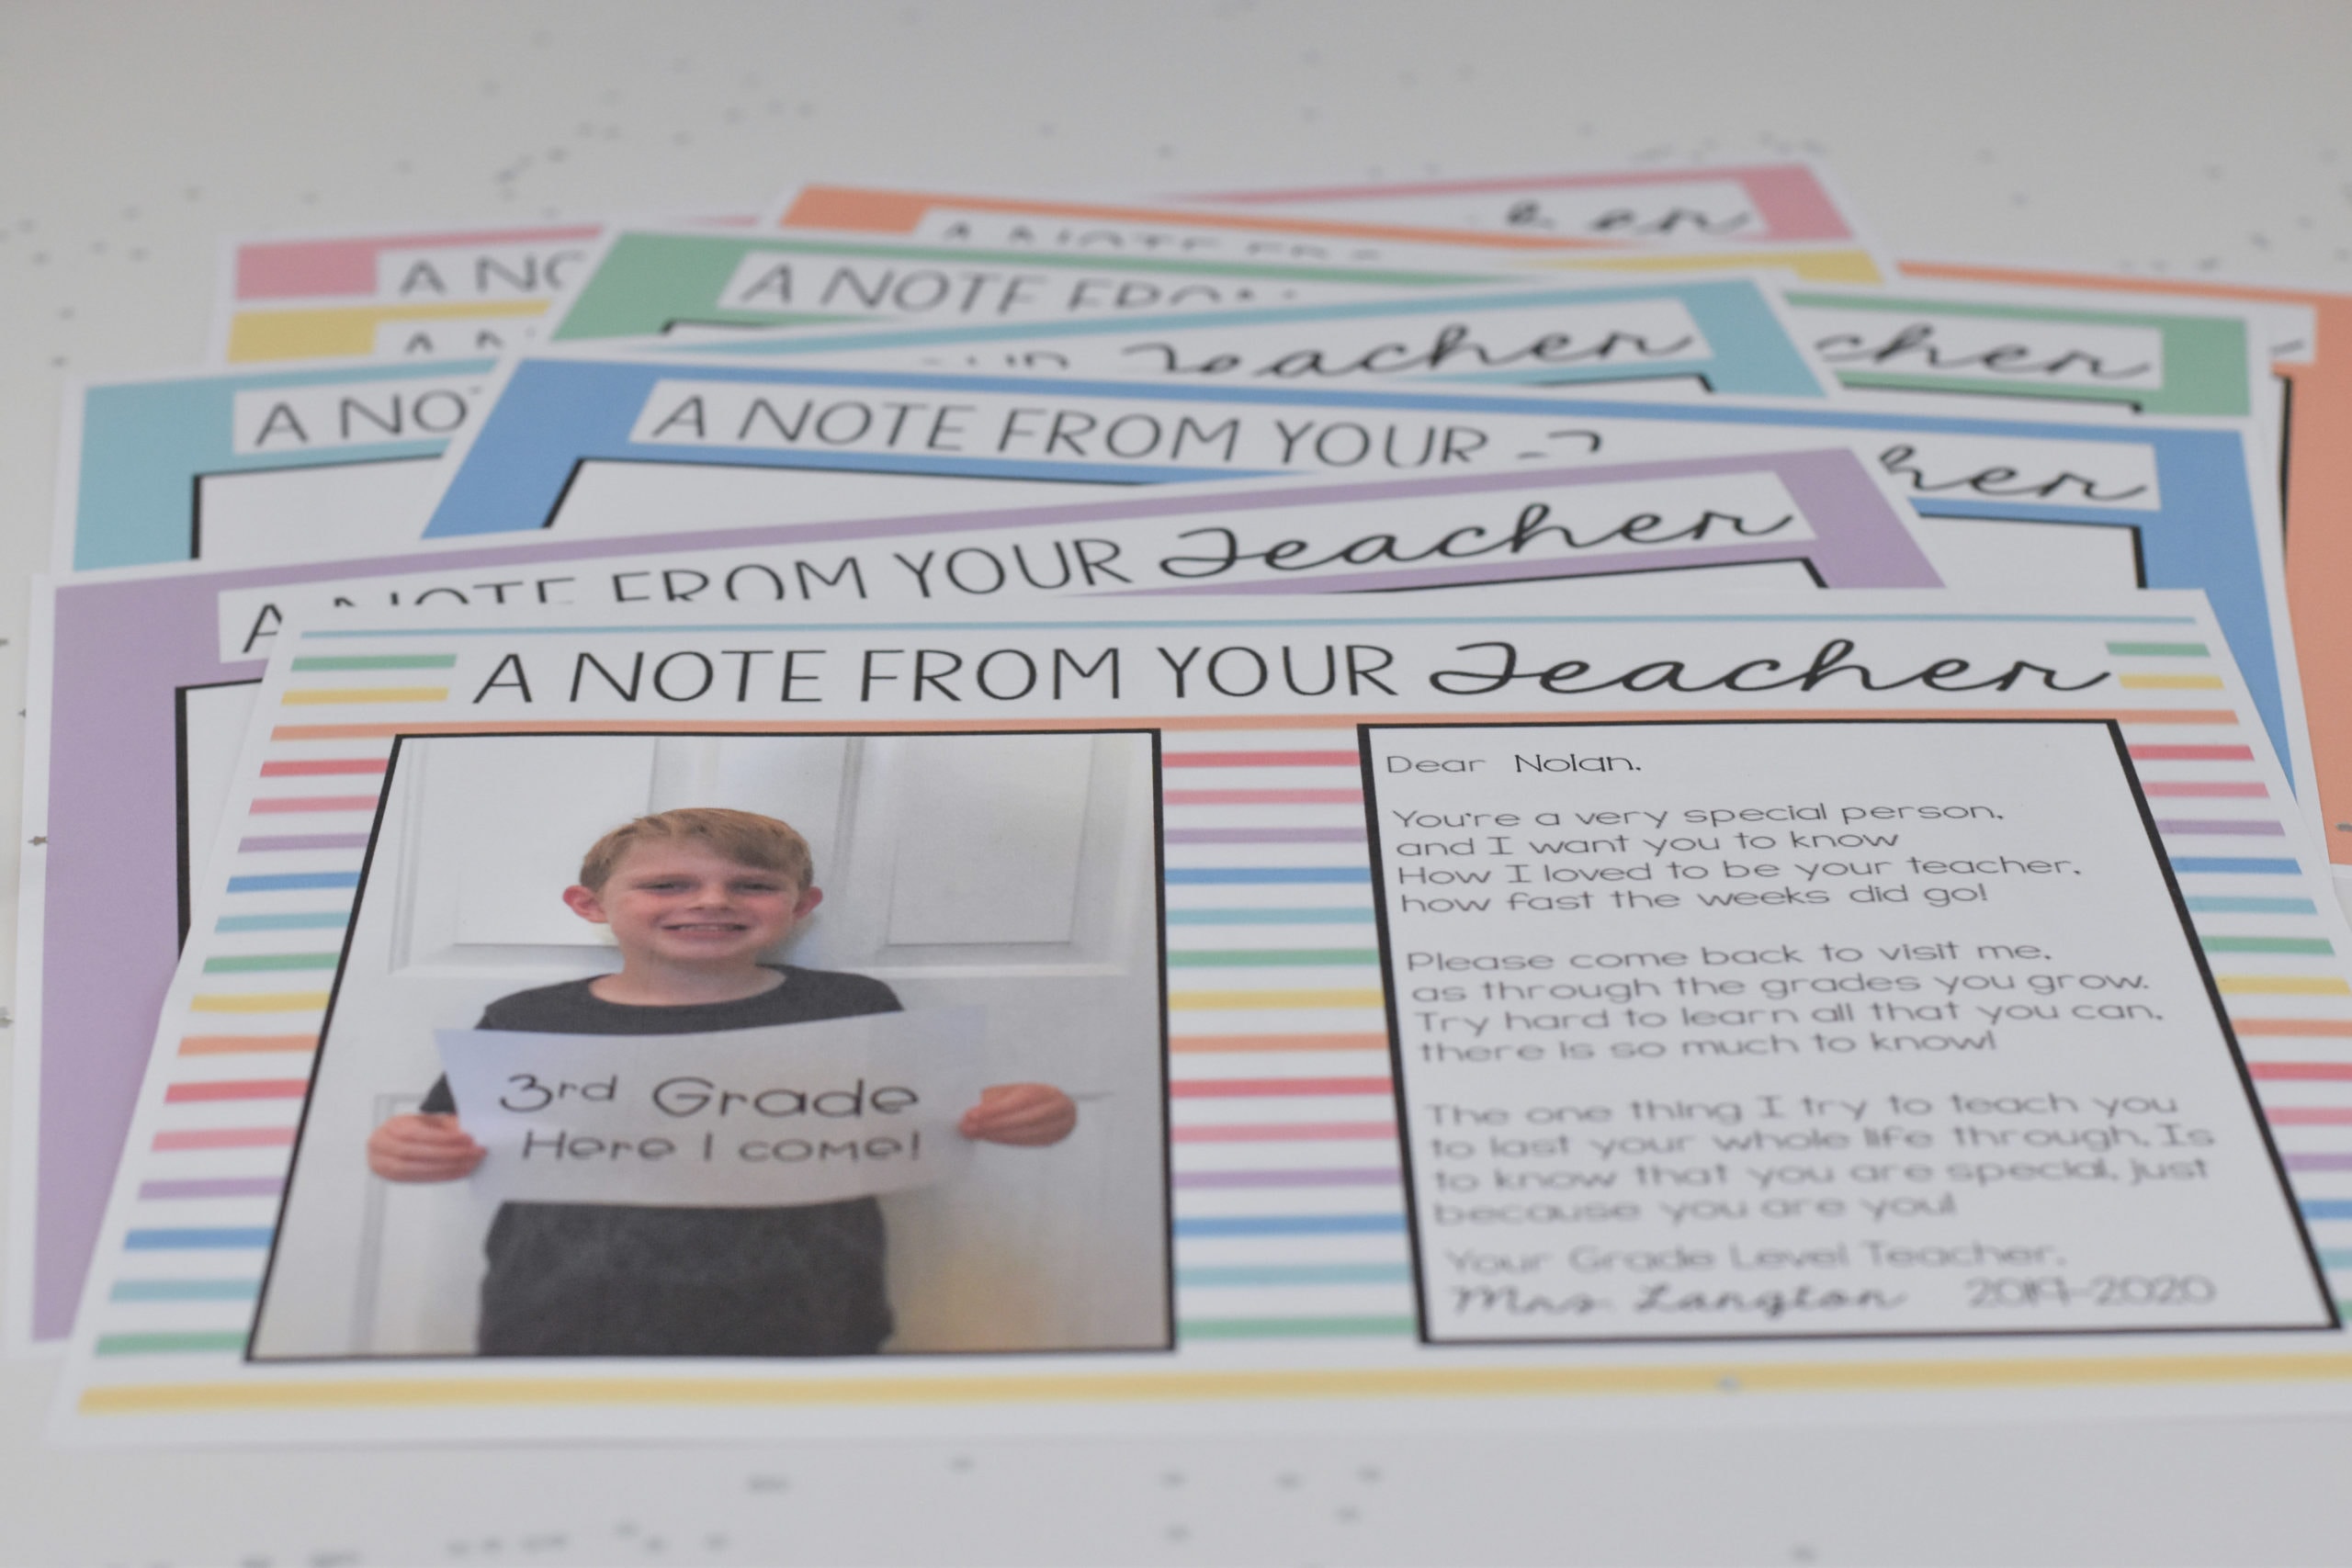 en
A NO
A NOTE FRO
A NOTE FRO
A N
Teacher
cher
A NO
A NOTE FROM YOUR
her
A NOTE FROM YOUR Teacher
A NOTE FROM YOUR Teacher
Dear Nolan,
You're a very special person,
and I want you to know
How I loved to be your teacher,
how fast the weeks did go!
Please come back to visit me,
as through the grades you grow.
Try hard to learn all that you can,
there is so much to know!
The one thing I try to teach you
to last your whole life through, Is
to know that you are special, just
because you are you!
Your Grade Level Teacher,
Mrs. Langton 2019-2020
3rd Grade
Here I come!